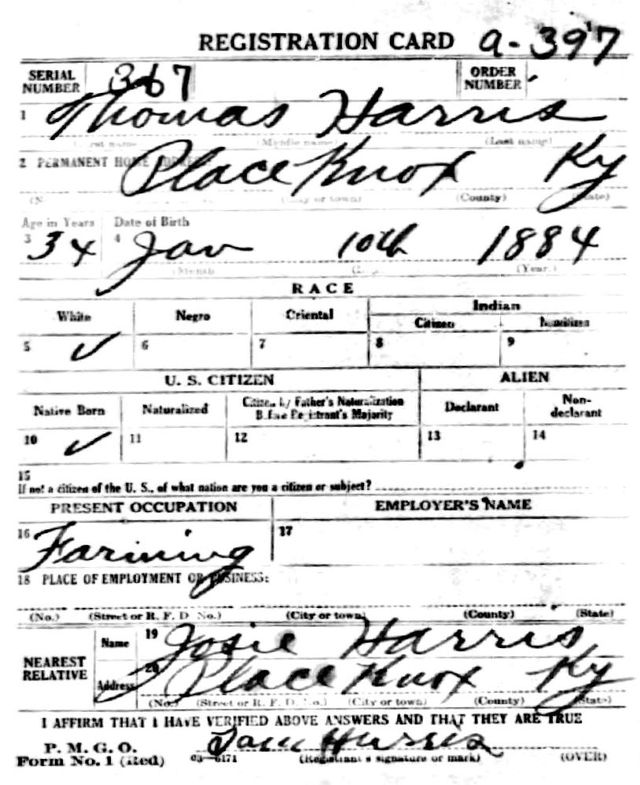 REGISTRATION CARD a-397
SERIAL NUMBER 367 ORDER NUMBER
1 Thomas Harris
(Middle name) (Last name)
2 PERMANENT HOME ADDRESS
Place Knox Ky
(City or town) (County) (State)
Age in Years Date of Birth
3 34 4 Jan 10th 1884
(Month) (Year)
RACE
White Negro Oriental Indian
Citizen Noncitizen
5 ✓ 6 7 8 9
U. S. CITIZEN ALIEN
Native Born Naturalized Citizen by Father's Naturalization Before Registrant's Majority Declarant Non-declarant
10 ✓ 11 12 13 14
15
If not a citizen of the U. S., of what nation are you a citizen or subject?
PRESENT OCCUPATION EMPLOYER'S NAME
16 Farming 17
18 PLACE OF EMPLOYMENT OR BUSINESS:
(No.) (Street or R. F. D. No.) (City or town) (County) (State)
NEAREST RELATIVE Name 19 Josie Harris
Address 20 Place Knox Ky
(No.) (Street or R. F. D. No.) (City or town) (County) (State)
I AFFIRM THAT I HAVE VERIFIED ABOVE ANSWERS AND THAT THEY ARE TRUE
P. M. G. O.
Form No. 1 (Red) 03—6171 (Registrant's signature or mark) (OVER)
Harris